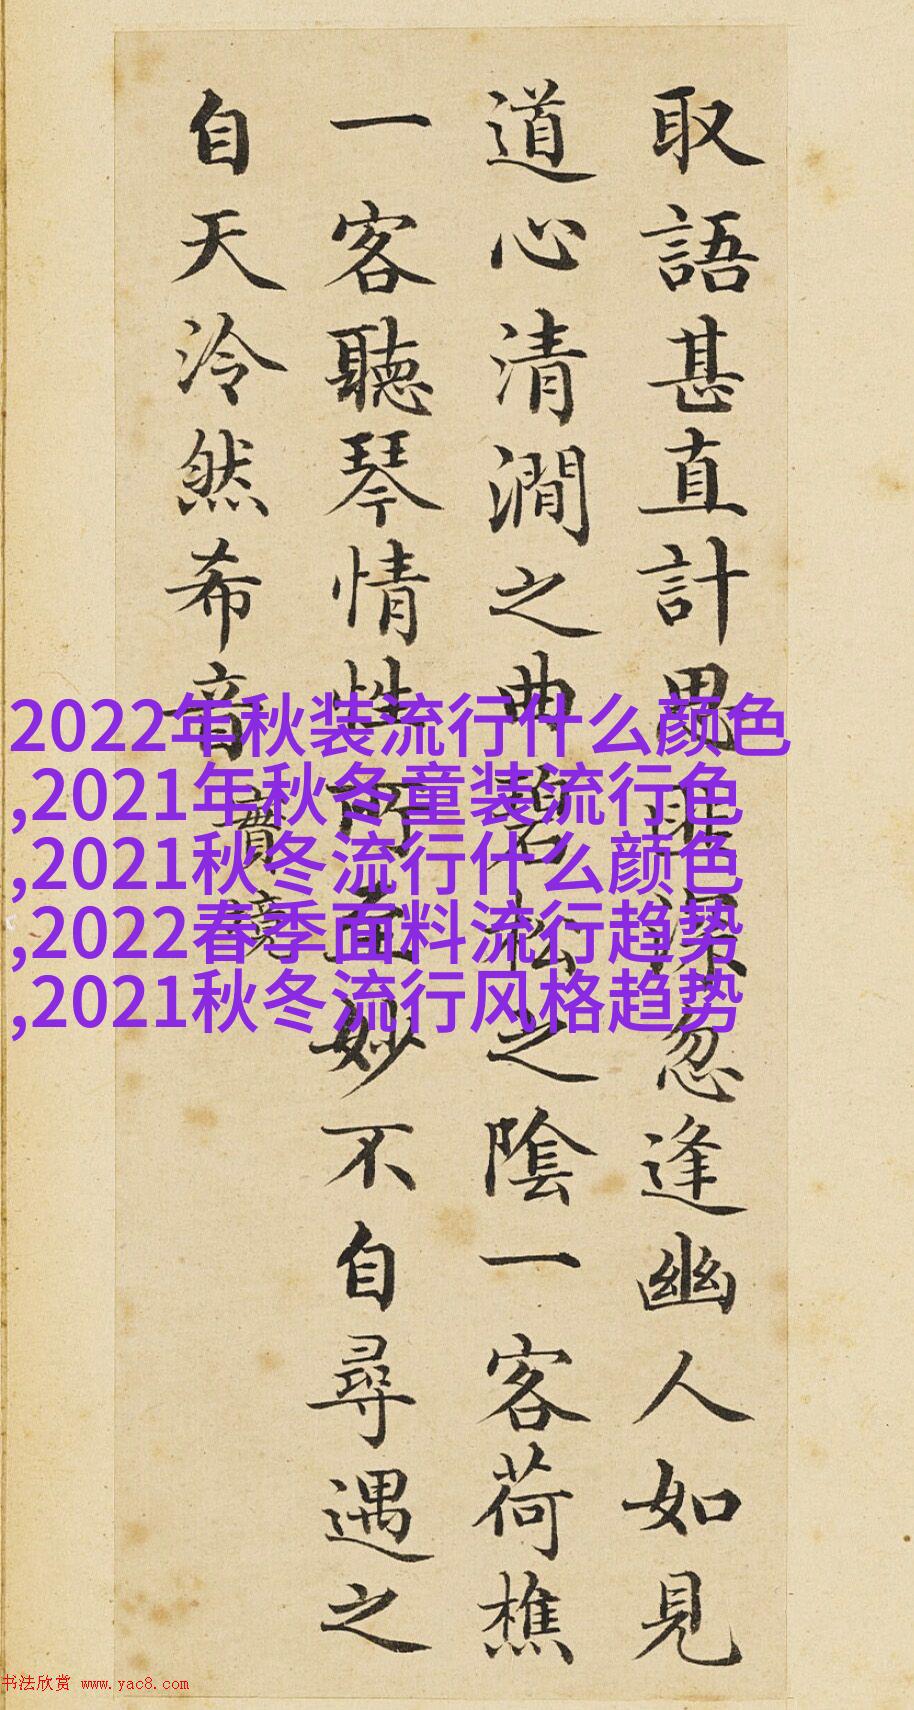 取語甚直計思匪深忽逢幽人如見
道心清澗之曲碧松之陰一客荷樵
一客聽琴情性所至妙不自尋遇之
自天泠然希音
實境
2022年秋装流行什么颜色
,2021年秋冬童装流行色
,2021秋冬流行什么颜色
,2022春季面料流行趋势
,2021秋冬流行风格趋势
书法欣赏 www.yac8.com